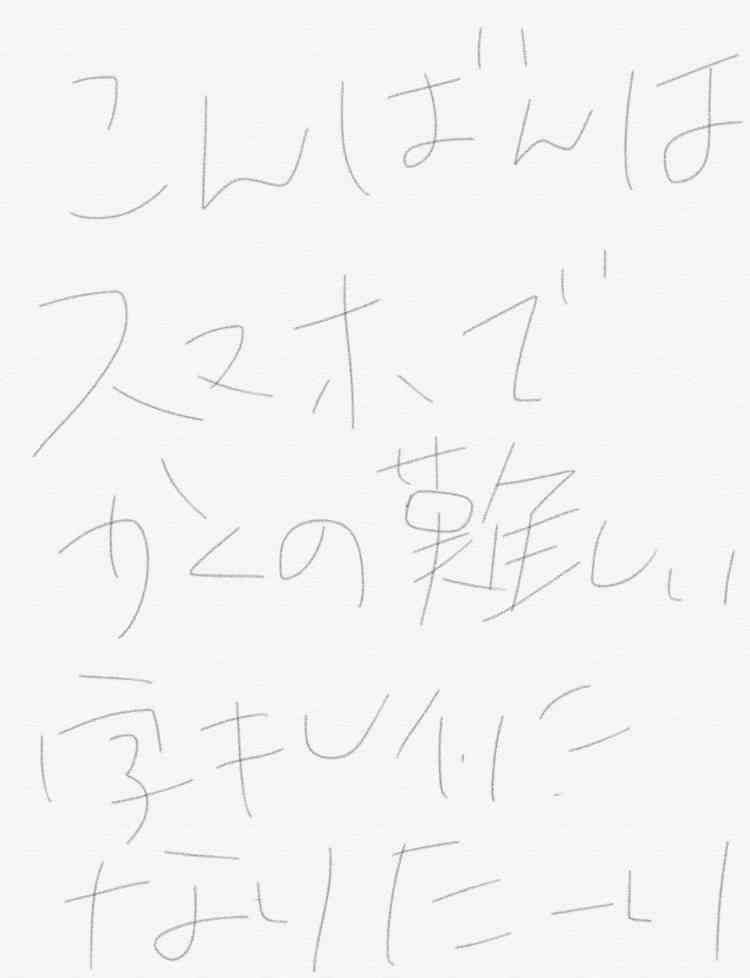 こんばんは
スマホで
かくの難しい
字キレイに
なりたーい